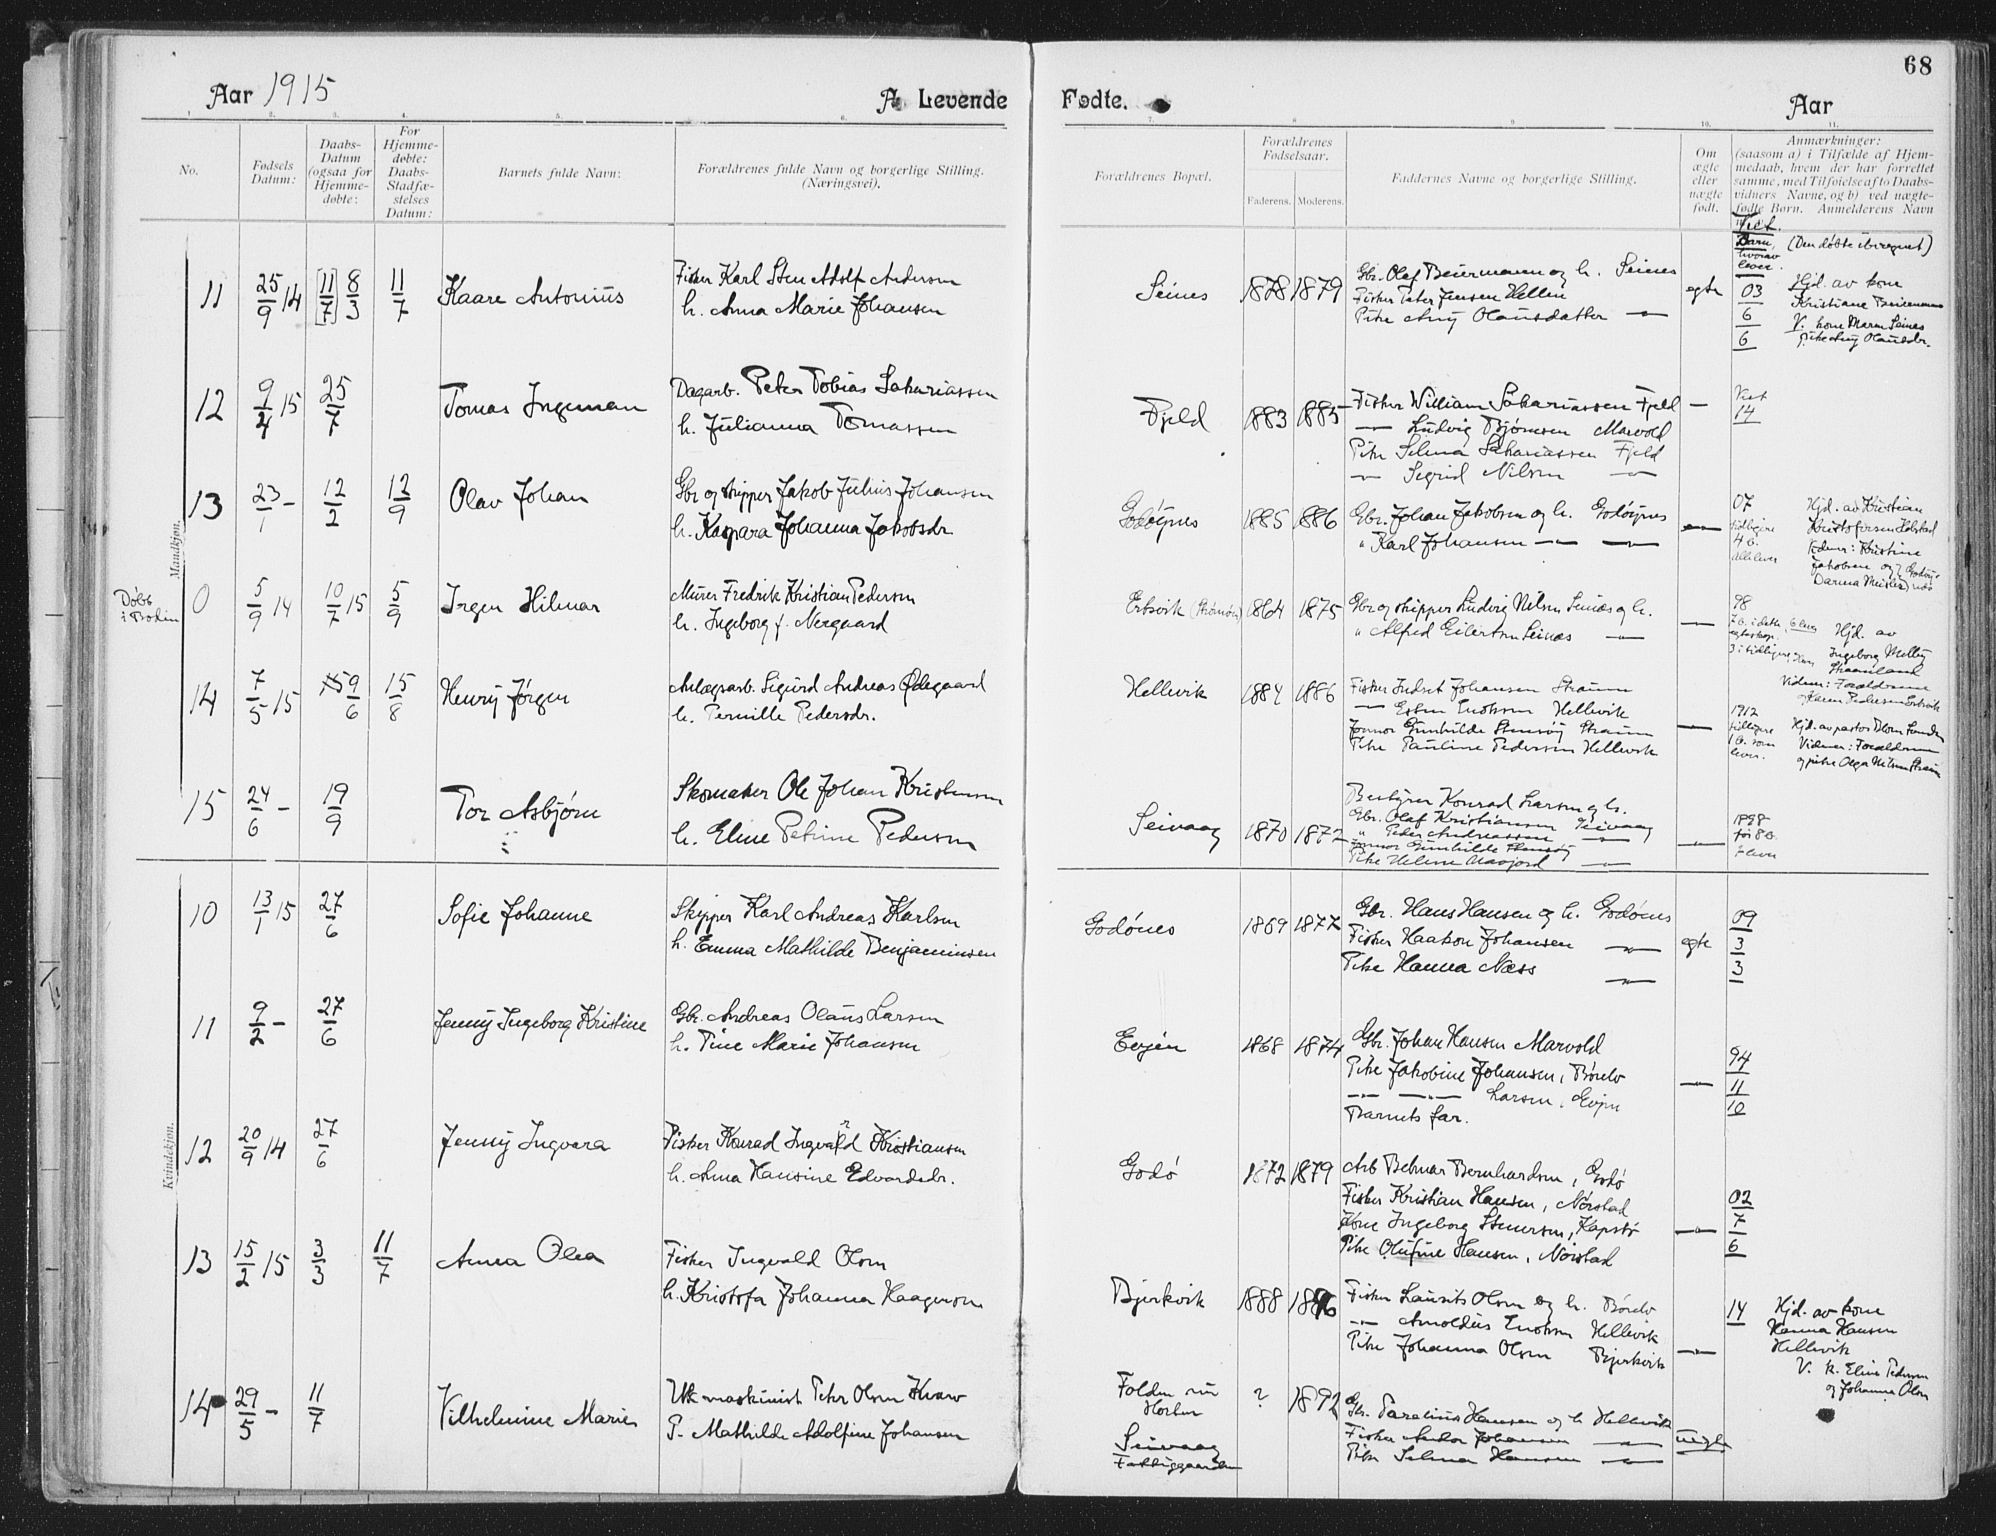 68
Aar 1915
A. Levende
Fødte.
Aar
No.
Fødsels Datum:
Daabs-Datum (ogsaa for Hjemme-døbte:
For Hjemme-døbte: Daabs-Stadfæ-stelses Datum:
Barnets fulde Navn:
Forældrenes fulde Navn og borgerlige Stilling. (Næringsvei).
Forældrenes Bopæl.
Forældrenes Fødselsaar.
Faderens. Moderens.
Faddernes Navne og borgerlige Stilling.
Om ægte eller uægte født.
Anmærkninger:
(saasom a) i Tilfælde af Hjem-
medaab, hvem der har forrettet
samme, med Tilføielse af to Daabs-
vidners Navne, og b) ved uægte-
fødte Børn. Anmelderens Navn
Mandkjøn.
11 25/9 14 [11/7] 8/3 11/7 Kaare Antonius
Fisker Karl Sten Adolf Andersen
h. Anna Marie Johansen
Seines 1878 1879
Gbr. Olaf Beiermann og h. Seines
Fisker Peter Jensen Hellen
Pike Any Olausdatter —"—
egte
Barn, (Den døbte iberegnet)
hvorav
lever.
03
6
6
Hjd. av kone
Kristiane Beiermann
V. kone Maren Seines
pike Any Olausdr.
12 9/4 15 25/7 Tomas Ingeman
Dagarb. Peter Tobias Sakariassen
h. Julianna Tomassen
Fjeld 1883 1885
Fisker William Sakariassen Fjeld
—"— Ludvig Bjørnsen Marvold
Pike Selma Sakariassen Fjeld
—"— Sigrid Nilsen —"—
14
13 23/1 - 12/2 12/9 Olav Johan
Gbr og skipper Jakob Julius Johansen
h. Kaspara Johanna Jakobsdr
Godøynes 1885 1886
Gbr. Johan Jakobsen og h. Godøynes
" Karl Johansen —"— —"—
07
4 b.
alle lever
Hjd. av Kristian
Kristofersen
Vidner: Kristine
Jakobsen og
Døbt
i Bodin
0 5/9 14 10/7 15 5/9 Inger Hilmar
Murer Fredrik Kristian Pedersen
h. Ingeborg f. Nergaard
Ertsvik (Strømøen) 1864 1875
Gbr og skipper Ludvig Nilsen Seines og h.
" Alfred Eilertsen Seines —"—
98
Hjd. av
Ingeborg Melby
Vidner: Forældrene
og Karen Pedersen Ertsvik
14 7/5 15 9/6 15/8 Henry Jørgen
Anlægsarb. Sigurd Andreas Ødegaard
h. Pernille Pedersdr.
Hellevik 1884 1886
Fisker Indset Johansen Straum
—"— Enoksen Hellevik
Jonmor Gunhilde Stensøy Straum
Pike Pauline Pedersen Hellevik
1912
tidligere
1 b. som
lever.
Hjd. av pastor Blom
Vidner: Forældrene
og pike Olga Nilsen Straum
15 24/6 - 19/9 Tor Asbjørn
Skomaker Ole Johan Kristensen
h. Eline Petrine Pedersen
Seivaag 1870 1872
Bestyrer Konrad Larsen og h.
Gbr. Olaf Kristiansen Seivaag
" Peder Andreassen —"—
Jonmor Gunhilde Stensøy
Pike Helene Navjord —"—
1898
7 lever
Kvindekjøn.
10 13/1 15 27/6 Sofie Johanne
Skipper Karl Andreas Karlsen
h. Emma Mathilde Benjaminsen
Godønes 1869 1877
Gbr. Hans Hansen og h. Godønes
Fisker Haakon Johansen —"—
Pike Hanna Næss —"—
egte
09
3
3
11 9/2 - 27/6 Jenny Ingeborg Kristine
Gbr. Andreas Olaus Larsen
h. Tine Marie Johansen
Evjen 1868 1874
Gbr. Johan Hansen Marvold
Pike Jakobine Johansen, Børelv
—"— —"— Larsen, Evjen
Barnets far.
94
11
10
12 20/9 14 27/6 Jenny Ingvara
Fisker Konrad Ingvard Kristiansen
h. Anna Hansine Edvardsdr.
Godø 1872 1879
Arb Betuar Bernhardsen, Godø
Fisker Kristian Hansen, Nørstad
Kone Ingeborg Steversen, Kapstø
Pike Olufine Hansen, Nørstad
02
7
6
13 15/2 15 3/3 11/7 Anna Olea
Fisker Ingvald Olsen
h. Kristofa Johanna Haagensen
Bjerkvik 1888 1896
Fisker Laurits Olsen og h. Børelv
—"— Arnoldus Enoksen Hellevik
Pike Johanna Olsen Bjerkvik
14
Hjd. av kone
Hanna Hansen
Hellevik
V. k. Eline Pedersen
og Johanna Olsen
14 29/5 - 11/7 Vilhelmine Marie
maskinist Peter Olsen Kvarv
P. Mathilde Adolfine Johansen
Folden
? 1892
Seivaag
Fattiggaarden
Gbr. Parelius Hansen og h Hellevik
Fisker Andor Johansen —"—
Pike Selma Hansen —"—
uegte